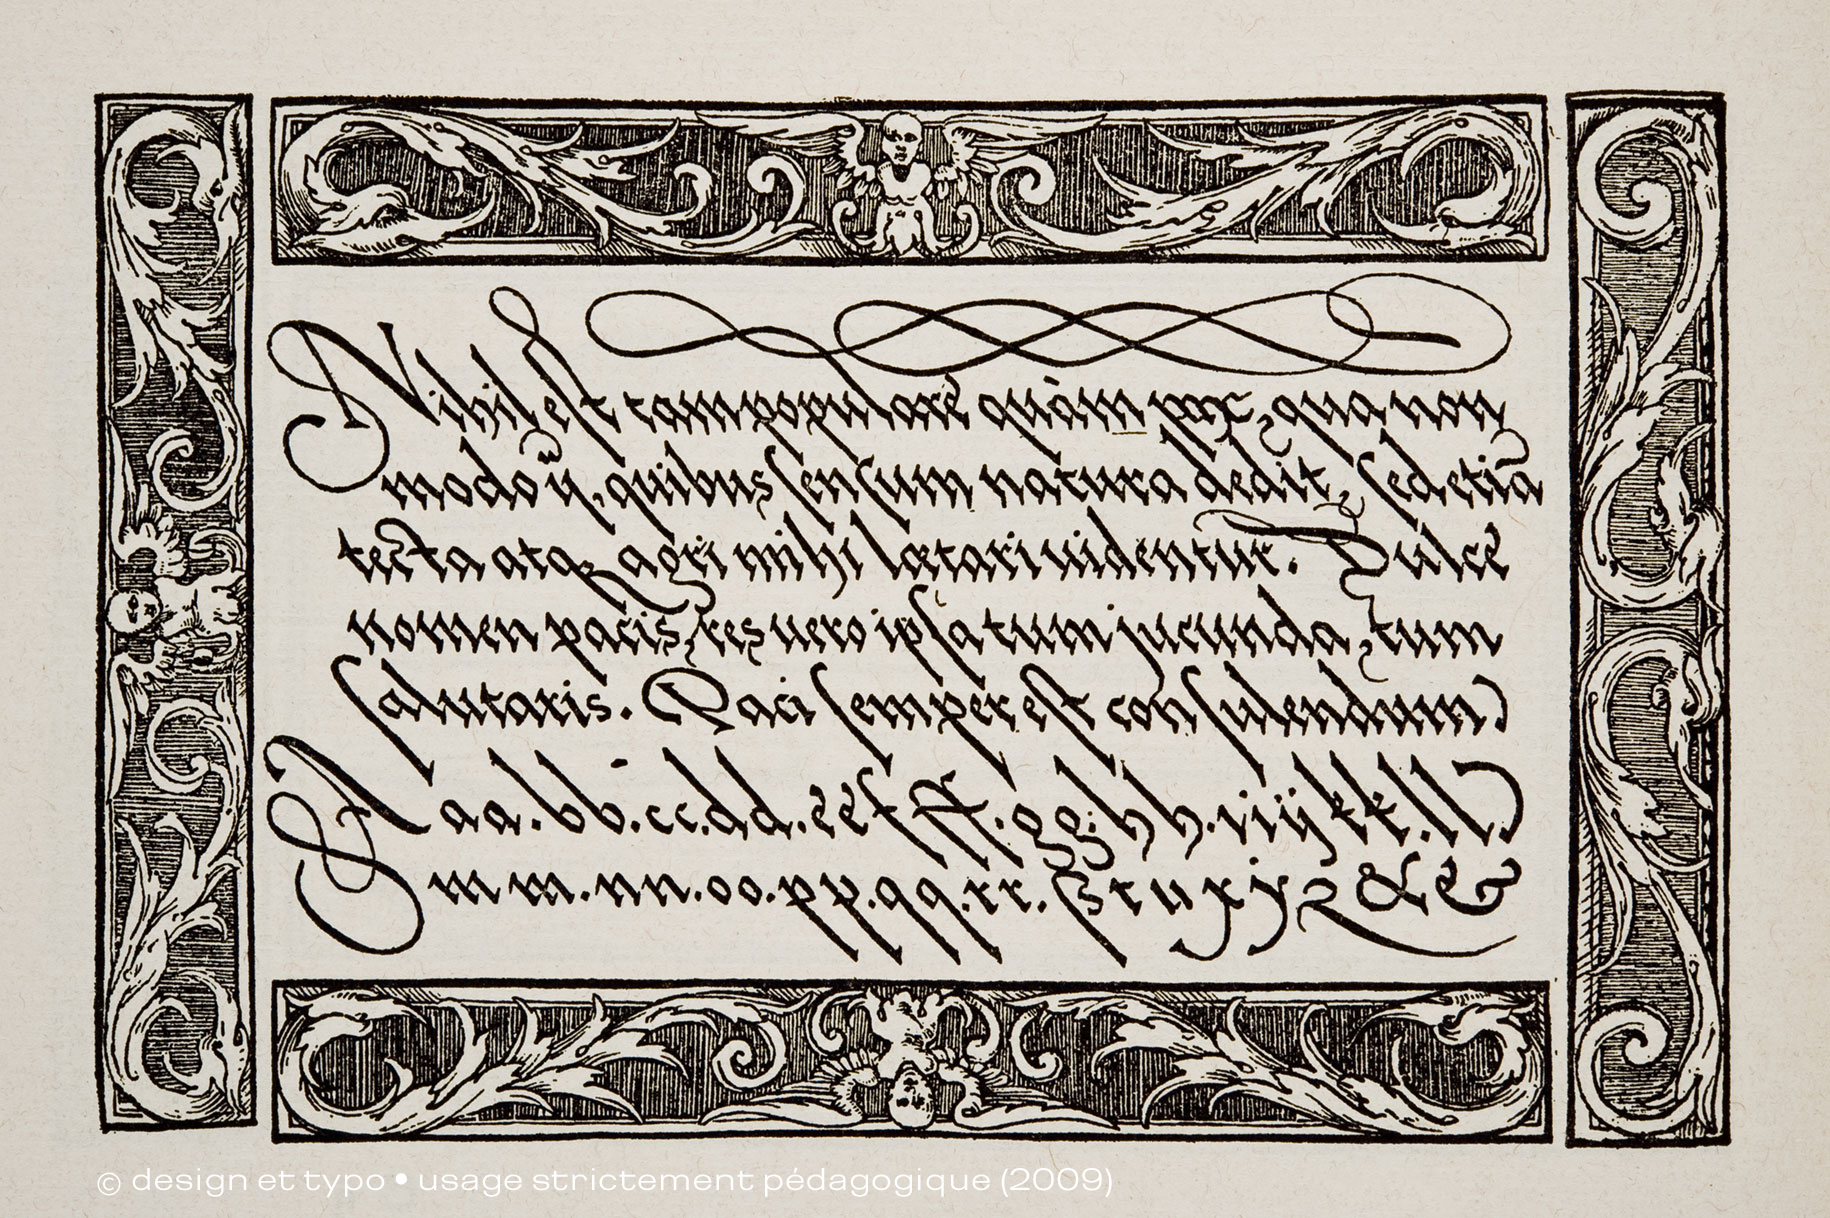 Nihil est tam populare quàm pax, qua non
modo ij, quibus sensum natura dedit, sed etiā
tecta atqꝫ agri mihi lætari uidentur. Dulce
nomen pacis, res uero ipsa tum jucunda, tum
salutaris. Paci semper est consulendum
A aa. bb. cc. dd. ee f ff. gg. hh. iij kk. ll
m m. nn. oo. pp. qq. rr. ſs t u x y z & &
© design et typo • usage strictement pédagogique (2009)